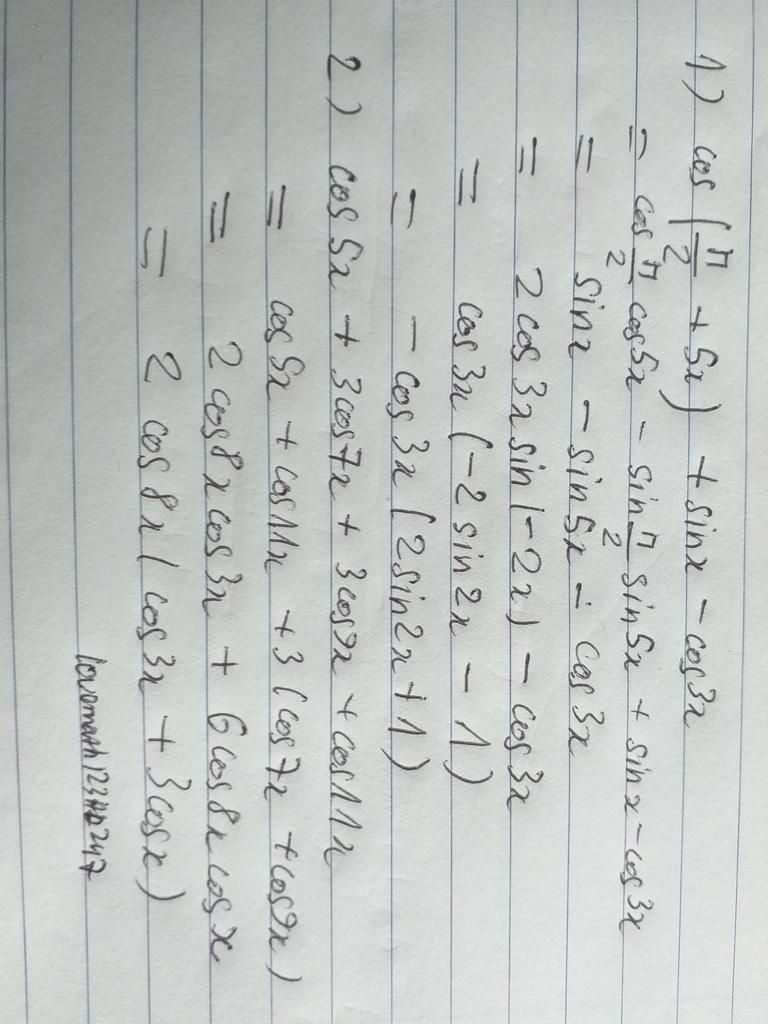 1) cos(π/2 + 5x) + sinx - cos3x
= cos π/2 cos5x - sin π/2 sin5x + sinx - cos3x
= sinx - sin5x - cos3x
= 2cos3x sin(-2x) - cos3x
= cos3x(-2sin2x - 1)
= -cos3x(2sin2x + 1)
2) cos5x + 3cos7x + 3cos9x + cos11x
= cos5x + cos11x + 3(cos7x + cos9x)
= 2cos8x cos3x + 6cos8x cosx
= 2cos8x(cos3x + 3cosx)